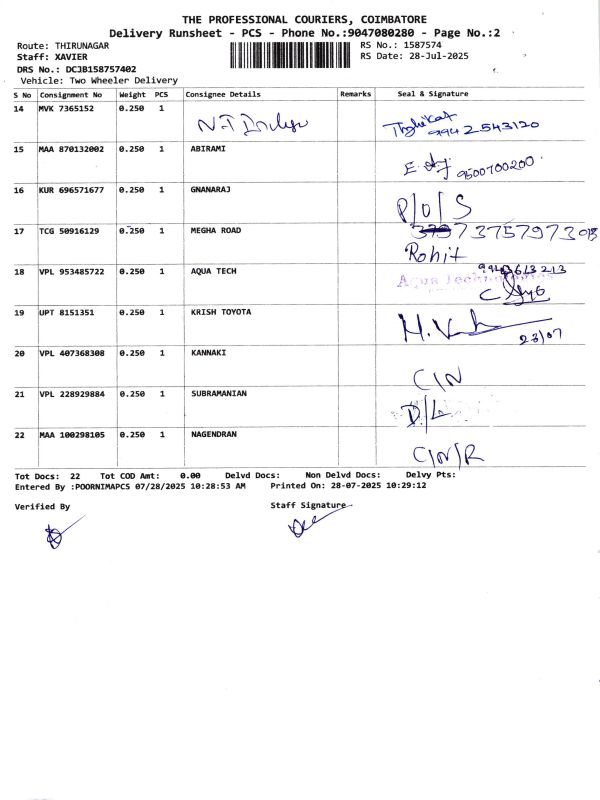 THE PROFESSIONAL COURIERS, COIMBATORE
Delivery Runsheet - PCS - Phone No.:9047080280 - Page No.:2
Route: THIRUNAGAR RS No.: 1587574
Staff: XAVIER RS Date: 28-Jul-2025
DRS No.: DCJB158757402
Vehicle: Two Wheeler Delivery
S No Consignment No Weight PCS Consignee Details Remarks Seal & Signature
14 MVK 7365152 0.250 1
9942543120
15 MAA 870132002 0.250 1 ABIRAMI
9500700200
16 KUR 696571677 0.250 1 GNANARAJ
P/O/S
17 TCG 50916129 0.250 1 MEGHA ROAD
Rohit
18 VPL 953485722 0.250 1 AQUA TECH
Aqua
19 UPT 8151351 0.250 1 KRISH TOYOTA
23/07
20 VPL 407368308 0.250 1 KANNAKI
C/N
21 VPL 228929884 0.250 1 SUBRAMANIAN
D/L
22 MAA 100298105 0.250 1 NAGENDRAN
C/N/R
Tot Docs: 22 Tot COD Amt: 0.00 Delvd Docs: Non Delvd Docs: Delvy Pts:
Entered By :POORNIMAPCS 07/28/2025 10:28:53 AM Printed On: 28-07-2025 10:29:12
Verified By Staff Signature